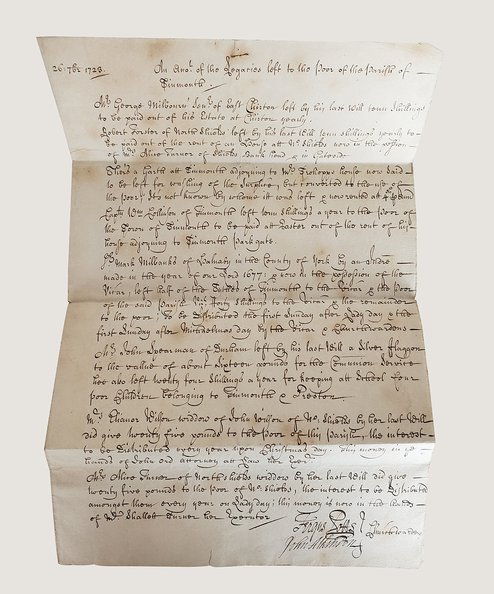 26 7br 1723.
An Anot. of the Legacies left to the Poor of the Parish of
Tinmouth
Mr. George Milbourn Senr. of East Chirton left by his last Will tenn Shillings
to be paid out of his Estate at Chirton yearly.
Robert Forster of North Shields left by his last Will tenn shillings yearly to
be paid out of the rent of an House at No. Shields now in the possion
of Mrs. Alice Turner of Shields Bank head
There's a Garth at Tinmouth adjoyning to Mr. house now said
to be left for washing of the Surplice, but converted to the use of
the Poor; Its not known by whome it was left & now rented at
Captn. Wm. of Tinmouth left tenn shillings a year to the Poor of
the Town of Tinmouth to be paid at Easter out of the rent of his
house adjoyning to Tinmouth Parkgate.
Sr. Mark Milbanke of Halnaby in the County of York by an
made in the year of our Lord 1677, & now in the possession of the
Vicar, left half of the Tithes of Tinmouth to the Vicar & the Poor
of the said Parish forty shillings to the Vicar & the remainder
to the poor, To be distributed the first Sunday after Lady day & the
first Sunday after Michaelmas day by the Vicar & Churchwardens
Mr. John Spearman of Durham left by his last Will a Silver Flaggon
to the value of about sixteen pounds for the Comunion Service
hee also left twenty four shillings a year for keeping at School four
poor Children belonging to Tinmouth & Preston
Mrs. Elianor Wilson widdow of John Wilson of No. Shields by her last Will
did give twenty five pounds to the Poor of this Parish, the interest
to be Distributed every year upon Christmas day. This money in ye
hands of John Attorney at Law her Exer.
Mrs. Alice Turner of North Shields widdow by her last Will did give
twenty five pounds to the Poor of No. Shields, the interest to be Distributed
amongst them every year on Lady day; this money is now in the hands
of Mr. Shallett Turner her Executor
Churchwardens
John